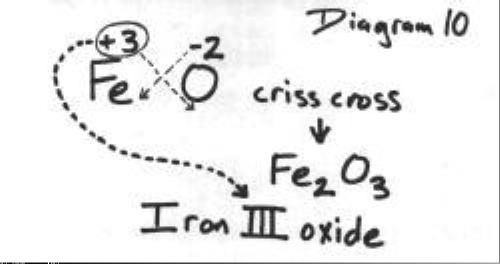 Diagram 10
+3 -2
Fe O
criss cross
Fe₂O₃
Iron III oxide